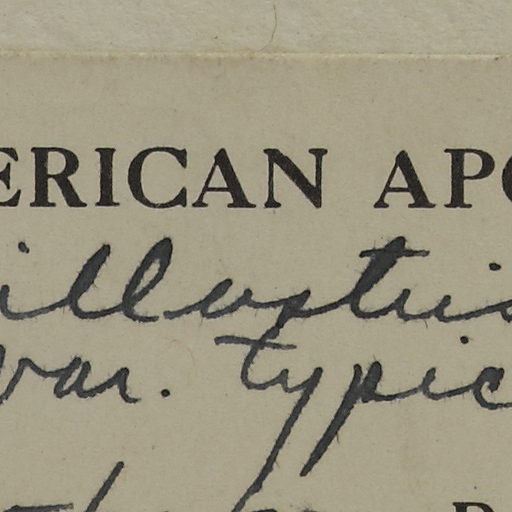 ERICAN APO
illustris
var. typic